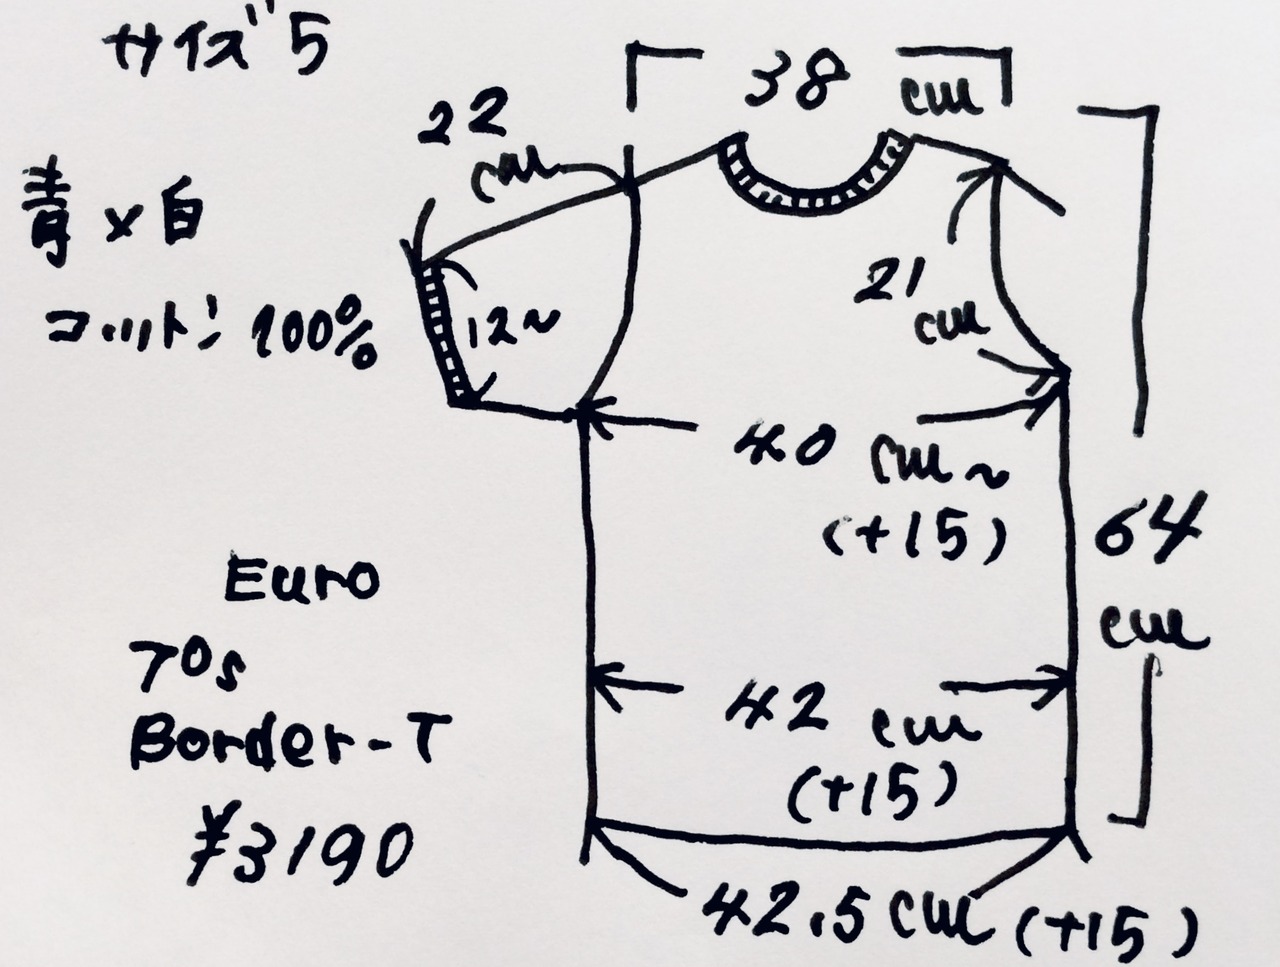 サイズ 5
38 cm
22 cm
青×白
コットン 100%
12~
21 cm
40 cm~
(+15)
64 cm
Euro
70s
Border-T
¥3190
42 cm
(+15)
42.5 cm (+15)